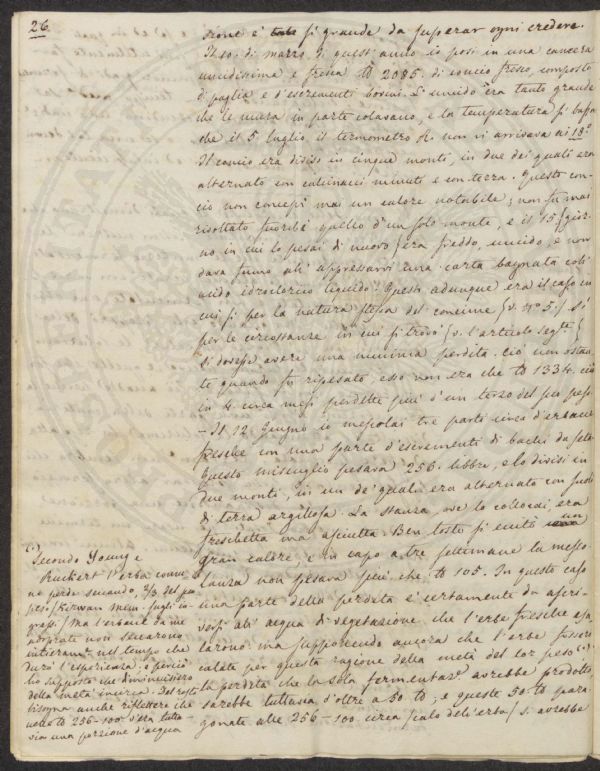 26
zione è si grande da superar ogni credere.
Il 10. di marzo di quest'anno io posi in una camera
umidissima e fresca ℔ 2085. di concio fresco, composto
di paglia e d'escrementi bovini. L'umido era tanto grande
che le mura in parte colavano, e la temperatura si bassa
che il 5 luglio il termometro R. non vi arrivava ai 18°
Il concio era diviso in cinque monti, in due dei quali era
alternato con calcinacci minuti e con terra. Questo con-
cio non concepì mai un calore notabile; non fu mai
rivoltato fuorchè quello d'un solo monte, e il 15 gior-
no, in cui lo pesai di nuovo era freddo, umido, e non
dava fumo all'appressarvi una carta bagnata coll'
acido idroclorico liquido. Questo adunque era il caso in
cui si per la natura stessa del concime (v. n° 5.) si
per le circostanze in cui si trovò (v. l'articolo segte)
si dovesse avere una minima perdita. Ciò non ostan-
te quando fu ripesato, esso non era che ℔ 1334. cioè
in 4. circa mesi perdette più d'un terzo del suo peso.
- Il 12. Giugno io mescolai tre parti circa d'erbacce
fresche con una parte d'escrementi di bachi da seta.
Questo miscuglio pesava 256. libbre, e lo divisi in
due monti, in un de' quali era alternato con suoli
di terra argillosa. La stanza ove lo collocai era
freschetta ma asciutta. Ben tosto si eccitò un
gran calore, e in capo a tre settimane la mesco-
lanza non pesava più che ℔ 105. In questo caso
una parte della perdita è certamente da ascri-
versi all'acqua di vegetazione che l'erbe fresche esa-
larono: ma supponendo ancora che l'erbe fossero
calate per questa ragione della metà del lor peso (*)
la perdita che la sola fermentaze avrebbe prodotto,
sarebbe tuttavia d'oltre a 50 ℔; e queste 50 ℔ para-
gonate alle 256 - 100 circa (calo dell'erba) s. avrebbe
(*) Secondo Young e
Ruckert l'erba comu-
ne perde seccando, 2/3 del suo
peso (Kirwan Mem. sugli in-
grassi) Ma l'erbacce da me
adoprate non seccarono
interamte nel tempo che
durò l'esperienza: e perciò
ho supposto che diminuissero
della metà incirca. Del resto
bisogna anche riflettere che
nelle ℔ 256-100 v'era tutta-
via una porzione d'acqua